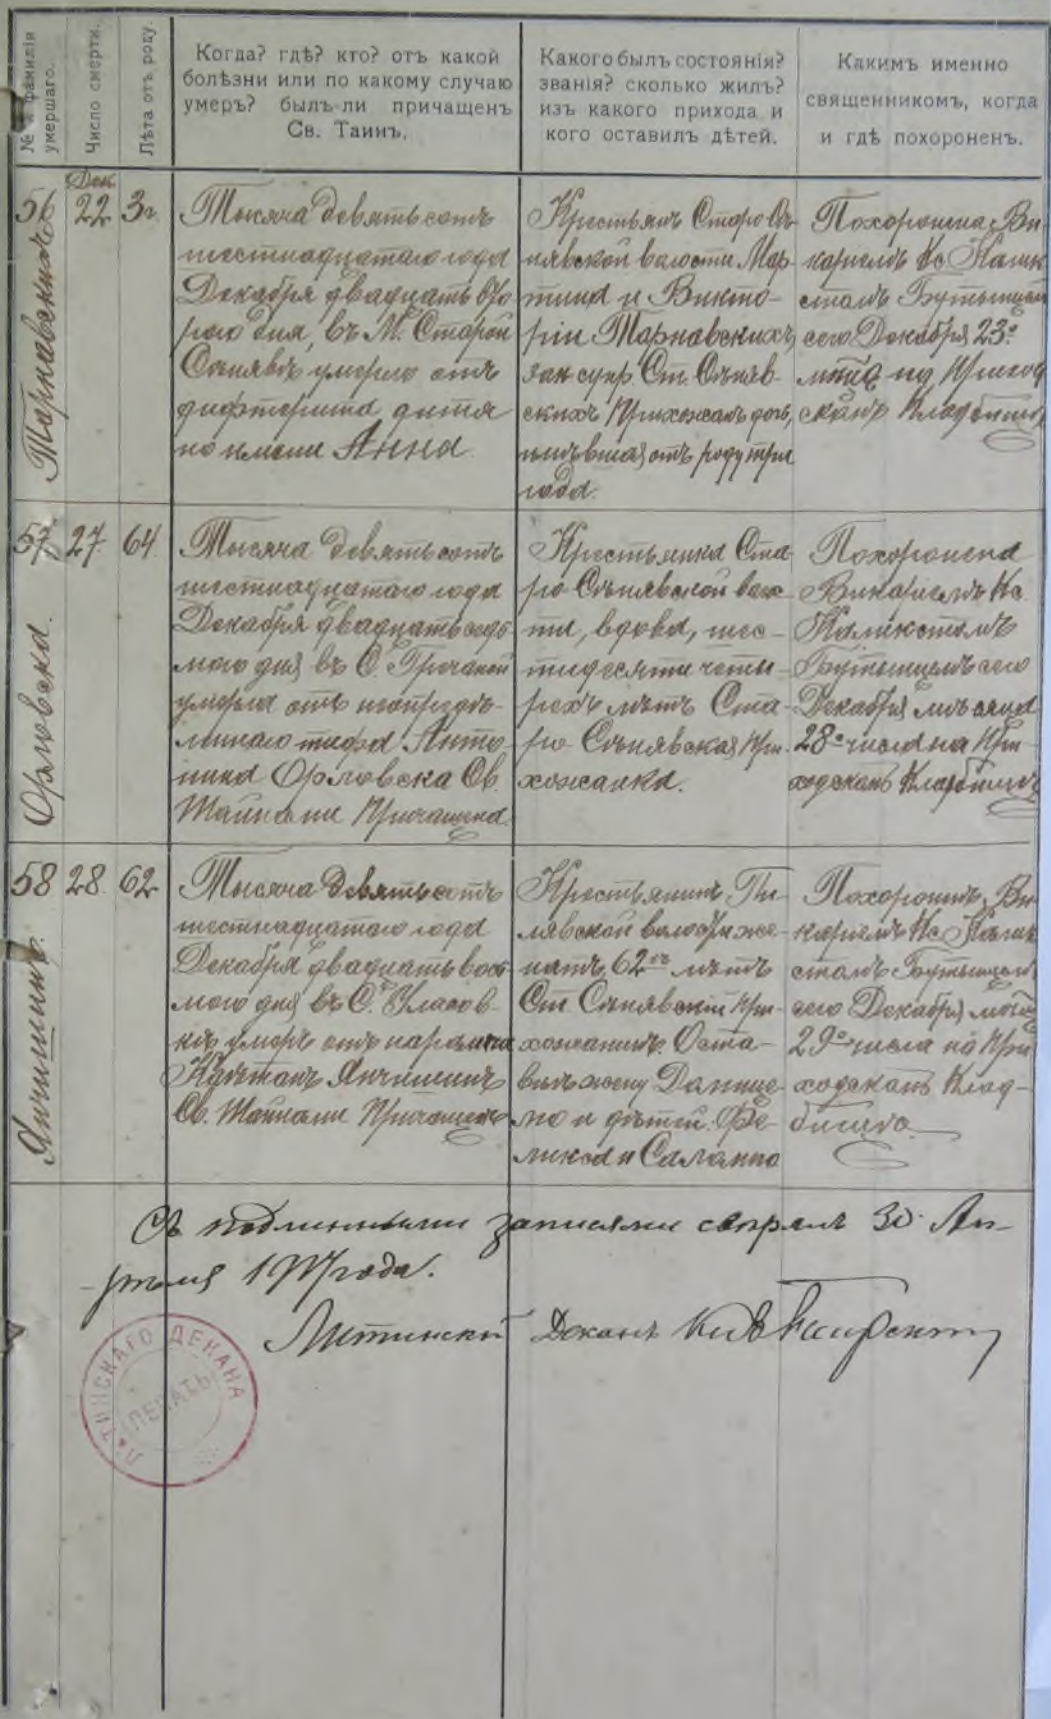 № и фамилія умершаго.
Число смерти.
Лѣта отъ роду.
Когда? гдѣ? кто? отъ какой
болѣзни или по какому случаю
умеръ? былъ-ли причащенъ
Св. Таинъ.
Какого былъ состоянія?
званія? сколько жилъ?
изъ какого прихода и
кого оставилъ дѣтей.
Каким именно
священникомъ, когда
и гдѣ похороненъ.
56
Тарнавскихъ
Дек.
22
3 г.
Тысяча девятьсотъ
шестнадцатаго года
Декабря двадцать вто
рого дня, въ М. Старой
Сѣнявѣ умерло отъ
дифтерита дитя
по имени Анна
Крестьянъ Старо Сѣ-
нявской волости Мар-
тина и Викто-
ріи Тарнавскихъ
зак супр. Ст. Сѣняв-
скихъ Прихожанъ дочь,
имѣвшая отъ роду три
года.
Похоронена Ви
каріемъ Кс. Калик
стомъ Бутынцемъ
сего Декабря 23го
мца на Приход
скомъ Кладбищѣ
57
Орловска.
27
64
Тысяча девятьсотъ
шестнадцатаго года
Декабря двадцать седь
мого дня въ С.
умерла отъ
тифа Анто
нина Орловска Св.
Тайнами Причащена
Крестьянка Ста
ро Сѣнявской волос
ти, вдова, шес-
тидесяти четы
рехъ лѣтъ Ста-
ро Сѣнявская При-
хожанка.
Похоронена
Викаріемъ Кс.
Каликстомъ
Бутынцемъ сего
Декабря мѣсяца
28го числа на При
ходскомъ Кладбищѣ
58
Янчишинъ.
28.
62
Тысяча девятьсотъ
шестнадцатаго года
Декабря двадцать вось
мого дня въ С. Уласов-
кѣ умеръ отъ паралича
Каэтанъ Янчишинъ
Св. Тайнами Причащенъ
Крестьянинъ Пи
лявской волости же
натъ, 62хъ лѣтъ
Ст Сѣнявскій При-
хожанинъ. Оста-
вилъ жену Даните
лю и дѣтей: Фе-
ликса и Саломію
Похороненъ Ви
каріемъ Кс. Калик
стомъ Бутынцемъ
сего Декабря мца
29го числа на При
ходскомъ Клад-
бищѣ
Съ подлинными записями сверялъ 30 Ап-
рѣля 1917 года.
Литинскій Деканъ
ЛИТИНСКАГО ДЕКАНА
ПЕЧАТЬ